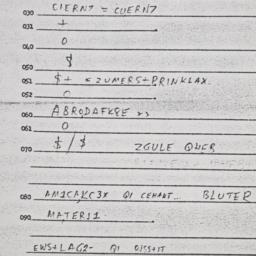 030 CIERN7 = CUERN7
031 +
040 O
050 $
051 $+ <ZUMERS+PRINKLAX.
052 O
060 ABRODAFKPE >>
061 O
070 $/$ ZGULE QWER
080 AM1CAKC3X QI CEHANT... BLUTER
090 MATERI1
EWS+LAG2- QI OISSIT